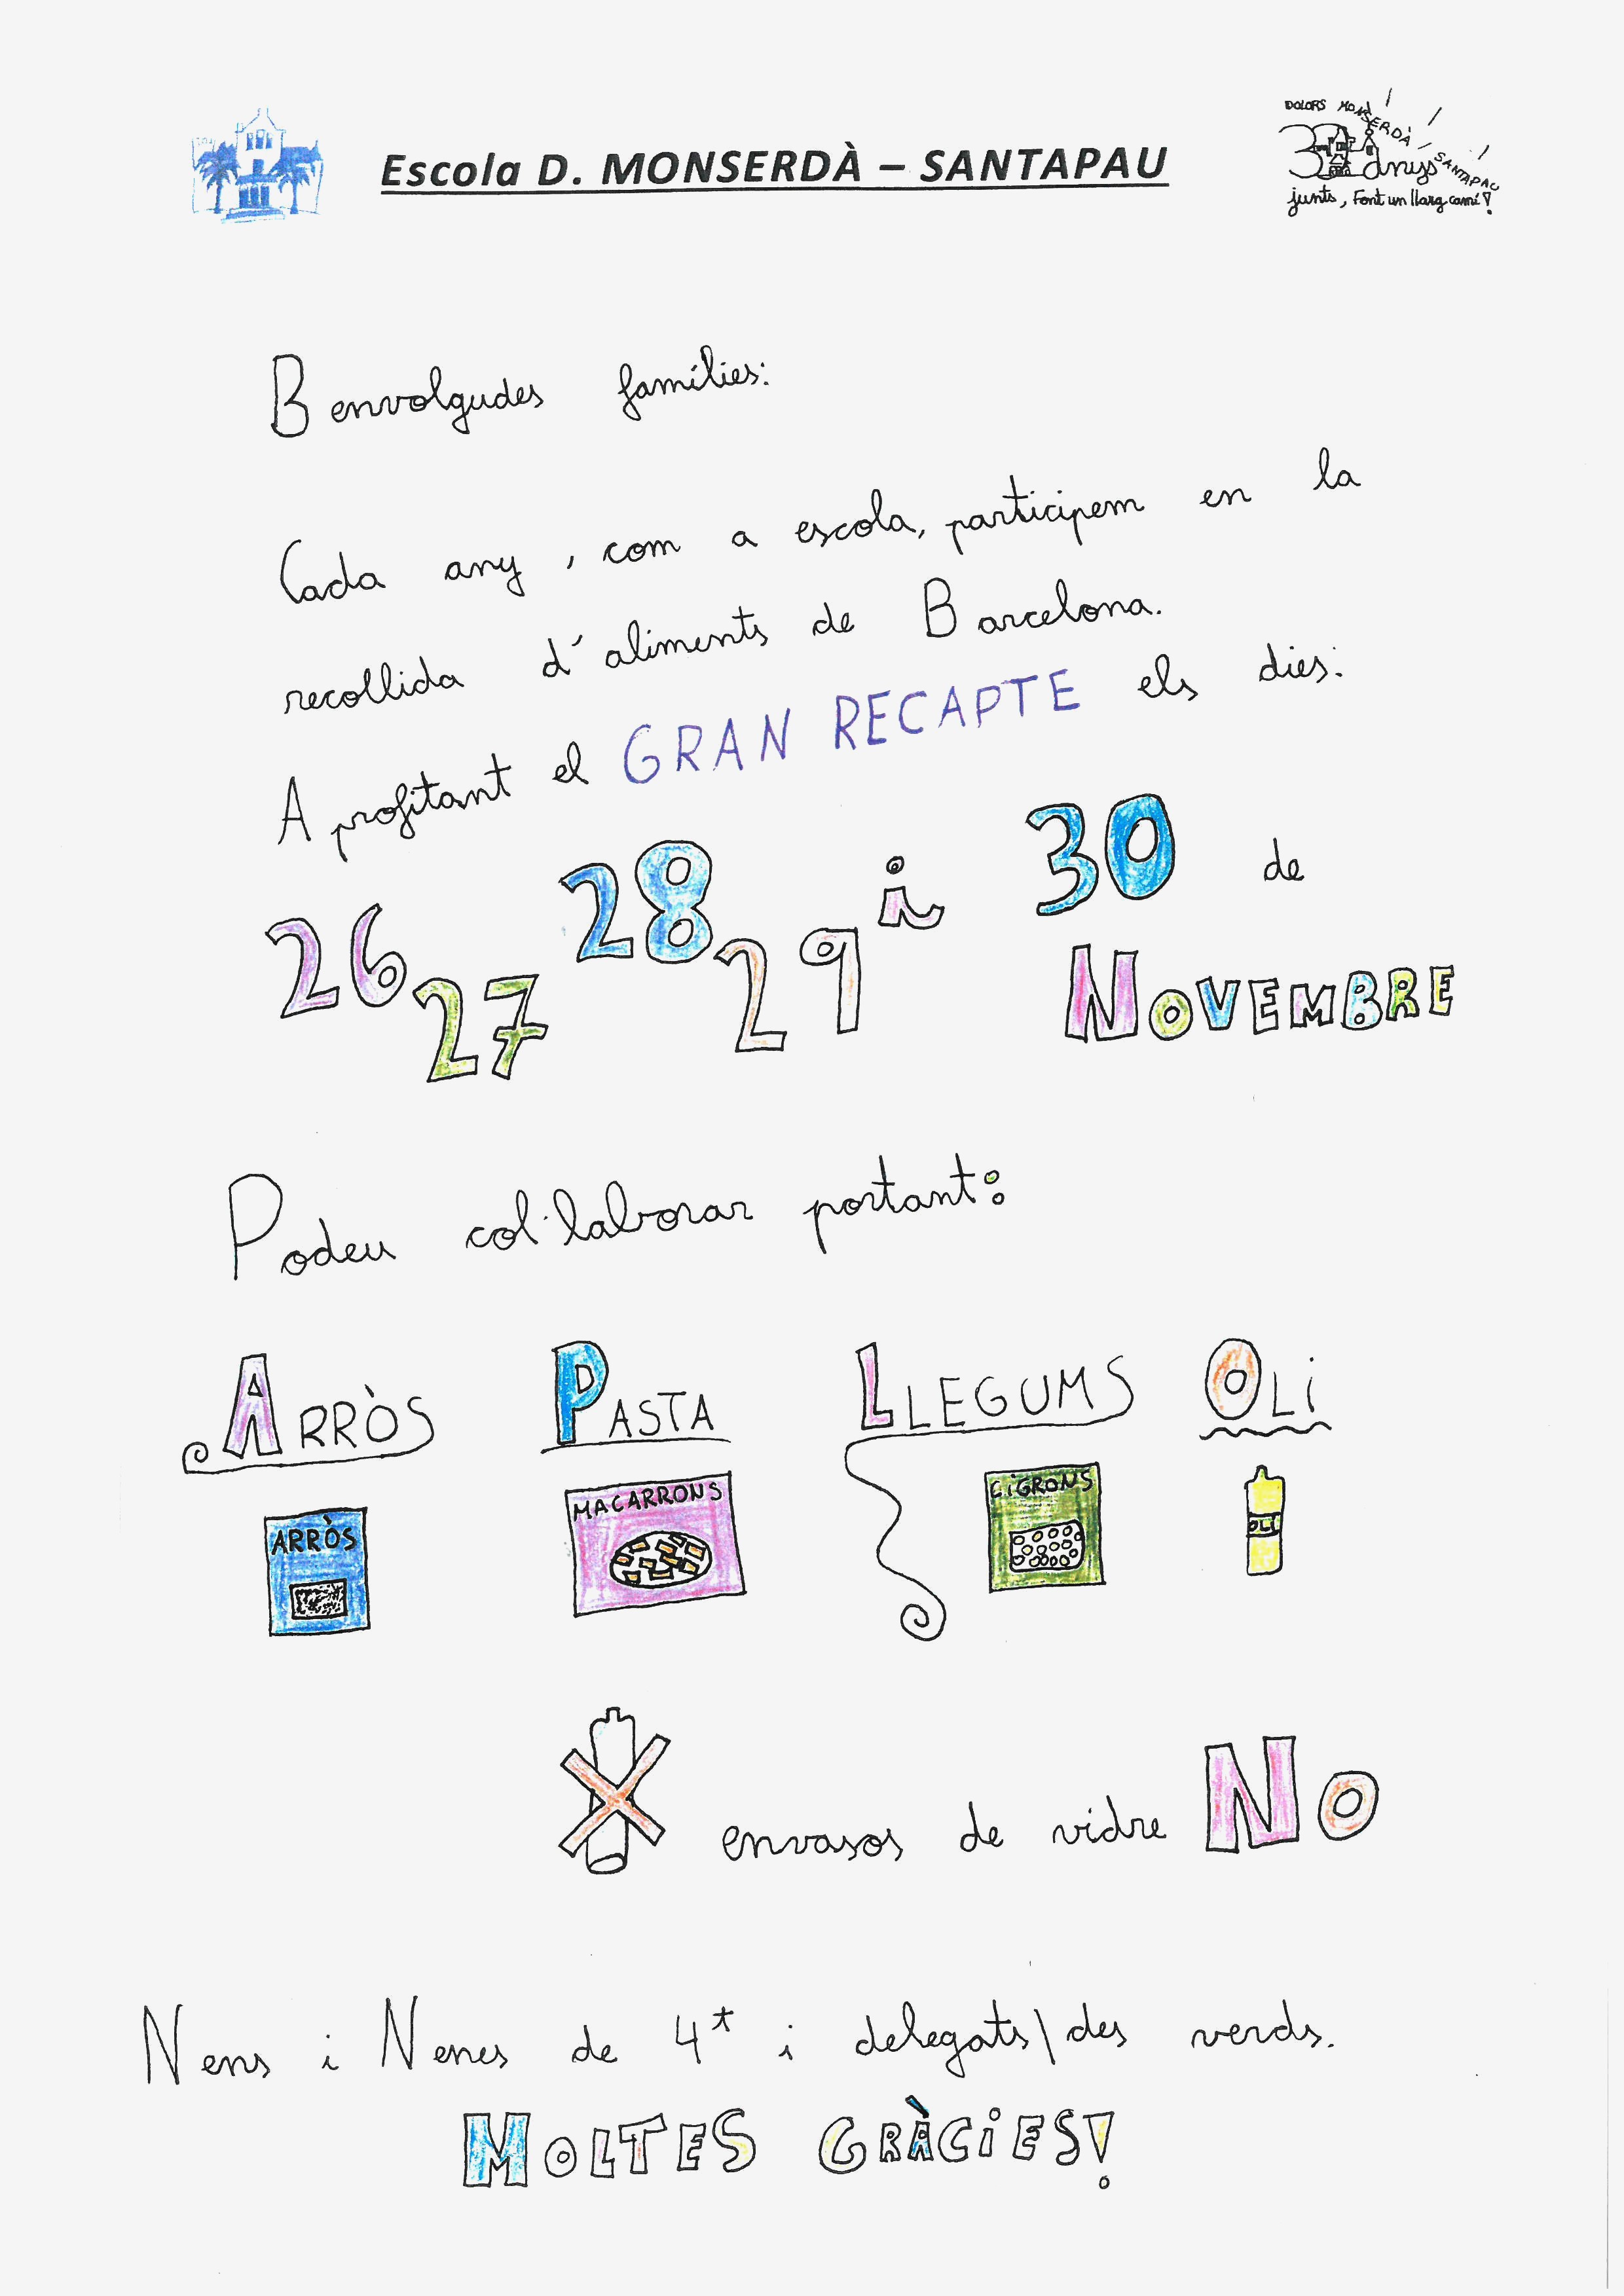 Escola D. MONSERDÀ – SANTAPAU
DOLORS MONSERDÀ SANTAPAU
30 anys
junts, Font un llarg camí!
Benvolgudes famílies:
Cada any, com a escola, participem en la
recollida d'aliments de Barcelona.
Aprofitant el GRAN RECAPTE els dies:
26 27 28 29 i 30 de
NOVEMBRE
Podeu col·laborar portant:
ARRÒS PASTA LLEGUMS OLI
ARRÒS MACARRONS CIGRONS OLI
envasos de vidre NO
Nens i Nenes de 4t i delegats/des verds.
MOLTES GRÀCIES!